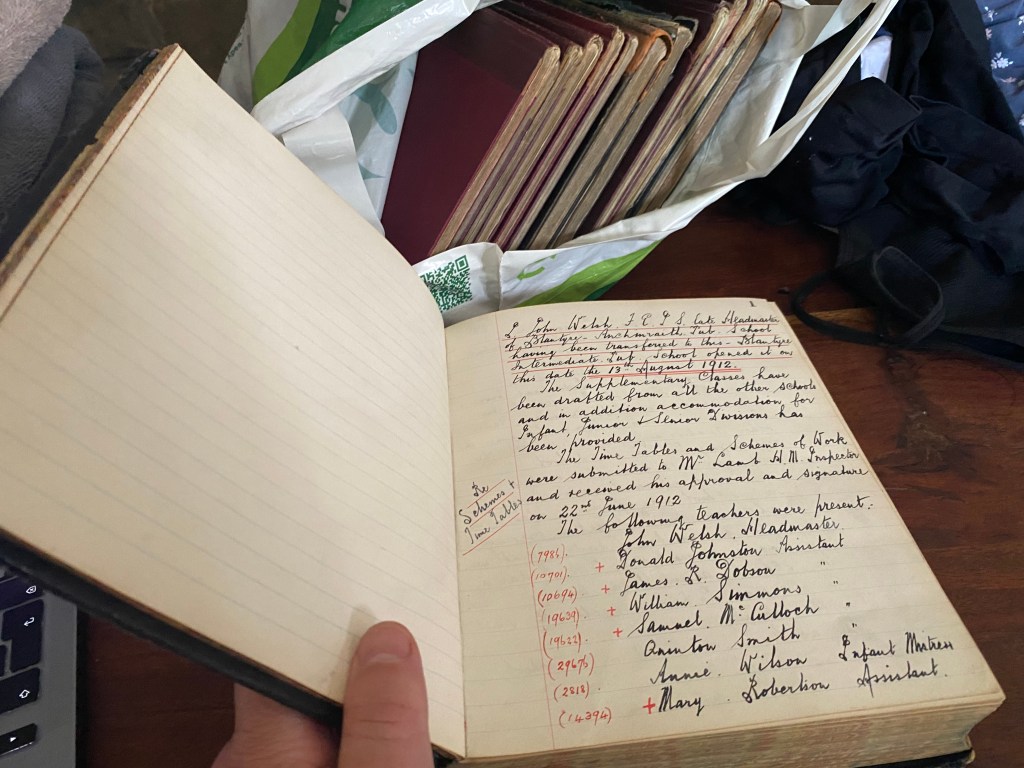 1
I, John Welsh, F. E. I. S. late Headmaster
of Blantyre - Auchinraith Pub. School
having been transferred to this - Blantyre
Intermediate Pub. School opened it on
this date the 13th August 1912.
The Supplementary Classes have
been drafted from all the other schools
and in addition accommodation for
Infant, Junior & Senior Divisions has
been provided
The Time Tables and Schemes of Work
were submitted to Mr Lamb H. M. Inspector
and received his approval and signature
on 22nd June 1912
Re
Schemes &
Time Tables
The following teachers were present:-
(7986). John Welsh. Headmaster.
(10701). + Donald Johnston Assistant
(10694). + James. R. Dobson "
(19639). + William Simmons "
(19622). + Samuel McCulloch "
(29676) Smith "
(2818). Annie Wilson Infant Mistress
(14394) + Mary Robertson Assistant.